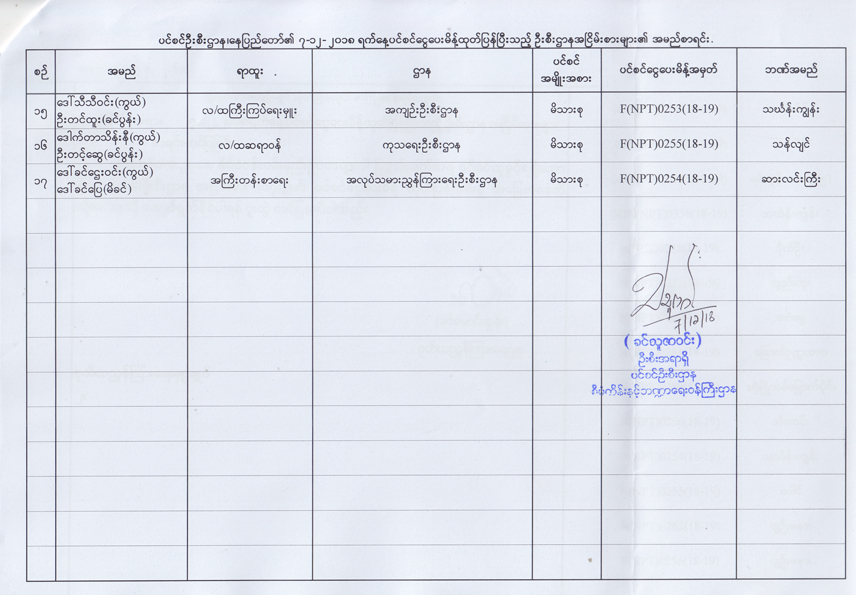 ပင်စင်ဦးစီးဌာန၊နေပြည်တော်၏ ၇-၁၂-၂၀၁၈ ရက်နေ့ပင်စင်ငွေပေးမိန့်ထုတ်ပြန်ပြီးသည့် ဦးစီးဌာနအငြိမ်းစားများ၏ အမည်စာရင်း.
စဉ် အမည် ရာထူး ဌာန ပင်စင်အမျိုးအစား ပင်စင်ငွေပေးမိန့်အမှတ် ဘဏ်အမည်
၁၅ ဒေါ်သီသီဝင်း(ကွယ်) လ/ထကြီးကြပ်ရေးမှူး အကျဉ်းဦးစီးဌာန မိသားစု F(NPT)0253(18-19) သင်္ဃန်းကျွန်း
ဦးတင်ထူး(ခင်ပွန်း)
၁၆ ဒေါက်တာသိန်းနီ(ကွယ်) လ/ထဆရာဝန် ကုသရေးဦးစီးဌာန မိသားစု F(NPT)0255(18-19) သန်လျင်
ဦးတင့်ဆွေ(ခင်ပွန်း)
၁၇ ဒေါ်ခင်ဌေးဝင်း(ကွယ်) အကြီးတန်းစာရေး အလုပ်သမားညွှန်ကြားရေးဦးစီးဌာန မိသားစု F(NPT)0254(18-19) ဆားလင်းကြီး
ဒေါ်ခင်ပြေ(မိခင်)
7/12/18
(ခင်လှူဇာဝင်း)
ဦးစီးအရာရှိ
ပင်စင်ဦးစီးဌာန
စီမံကိန်းနှင့်ဘဏ္ဍာရေးဝန်ကြီးဌာန